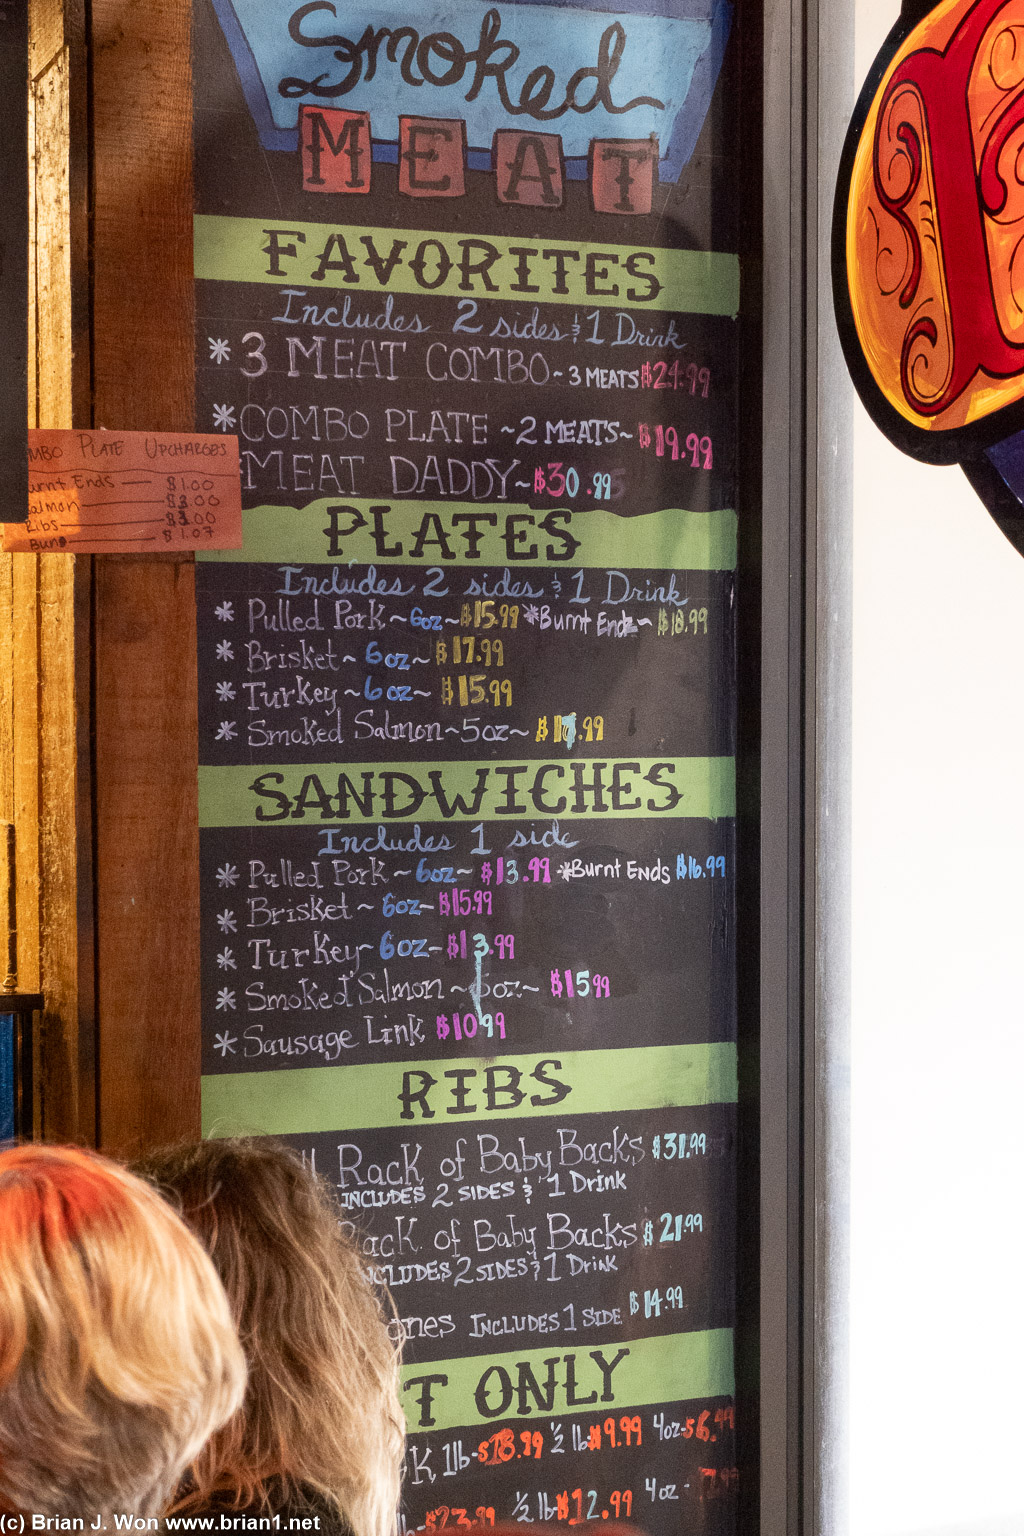 Smoked
MEAT
FAVORITES
Includes 2 sides & 1 Drink
* 3 MEAT COMBO ~ 3 MEATS $24.99
* COMBO PLATE ~ 2 MEATS ~ $19.99
MEAT DADDY ~ $30.99
PLATE UPCHARGES
Burnt Ends — $1.00
Salmon — $3.00
Ribs — $3.00
Buns — $1.07
PLATES
Includes 2 sides & 1 Drink
* Pulled Pork ~ 6oz ~ $15.99 *Burnt Endz ~ $18.99
* Brisket ~ 6oz ~ $17.99
* Turkey ~ 6oz ~ $15.99
* Smoked Salmon ~ 5oz ~
SANDWICHES
Includes 1 side
* Pulled Pork ~ 6oz ~ $13.99 *Burnt Ends $16.99
* Brisket ~ 6oz ~ $15.99
* Turkey ~ 6oz ~ $13.99
* Smoked Salmon ~ oz ~ $15.99
* Sausage Link $10.99
RIBS
Rack of Baby Backs $31.99
INCLUDES 2 SIDES & 1 Drink
Rack of Baby Backs $21.99
INCLUDES 2 SIDES & 1 Drink
INCLUDES 1 SIDE $14.99
ONLY
1lb - $18.99 ½ lb - $9.99 4oz - $6.99
$23.99 ½ lb - $12.99 4oz -
(c) Brian J. Won www.brian1.net